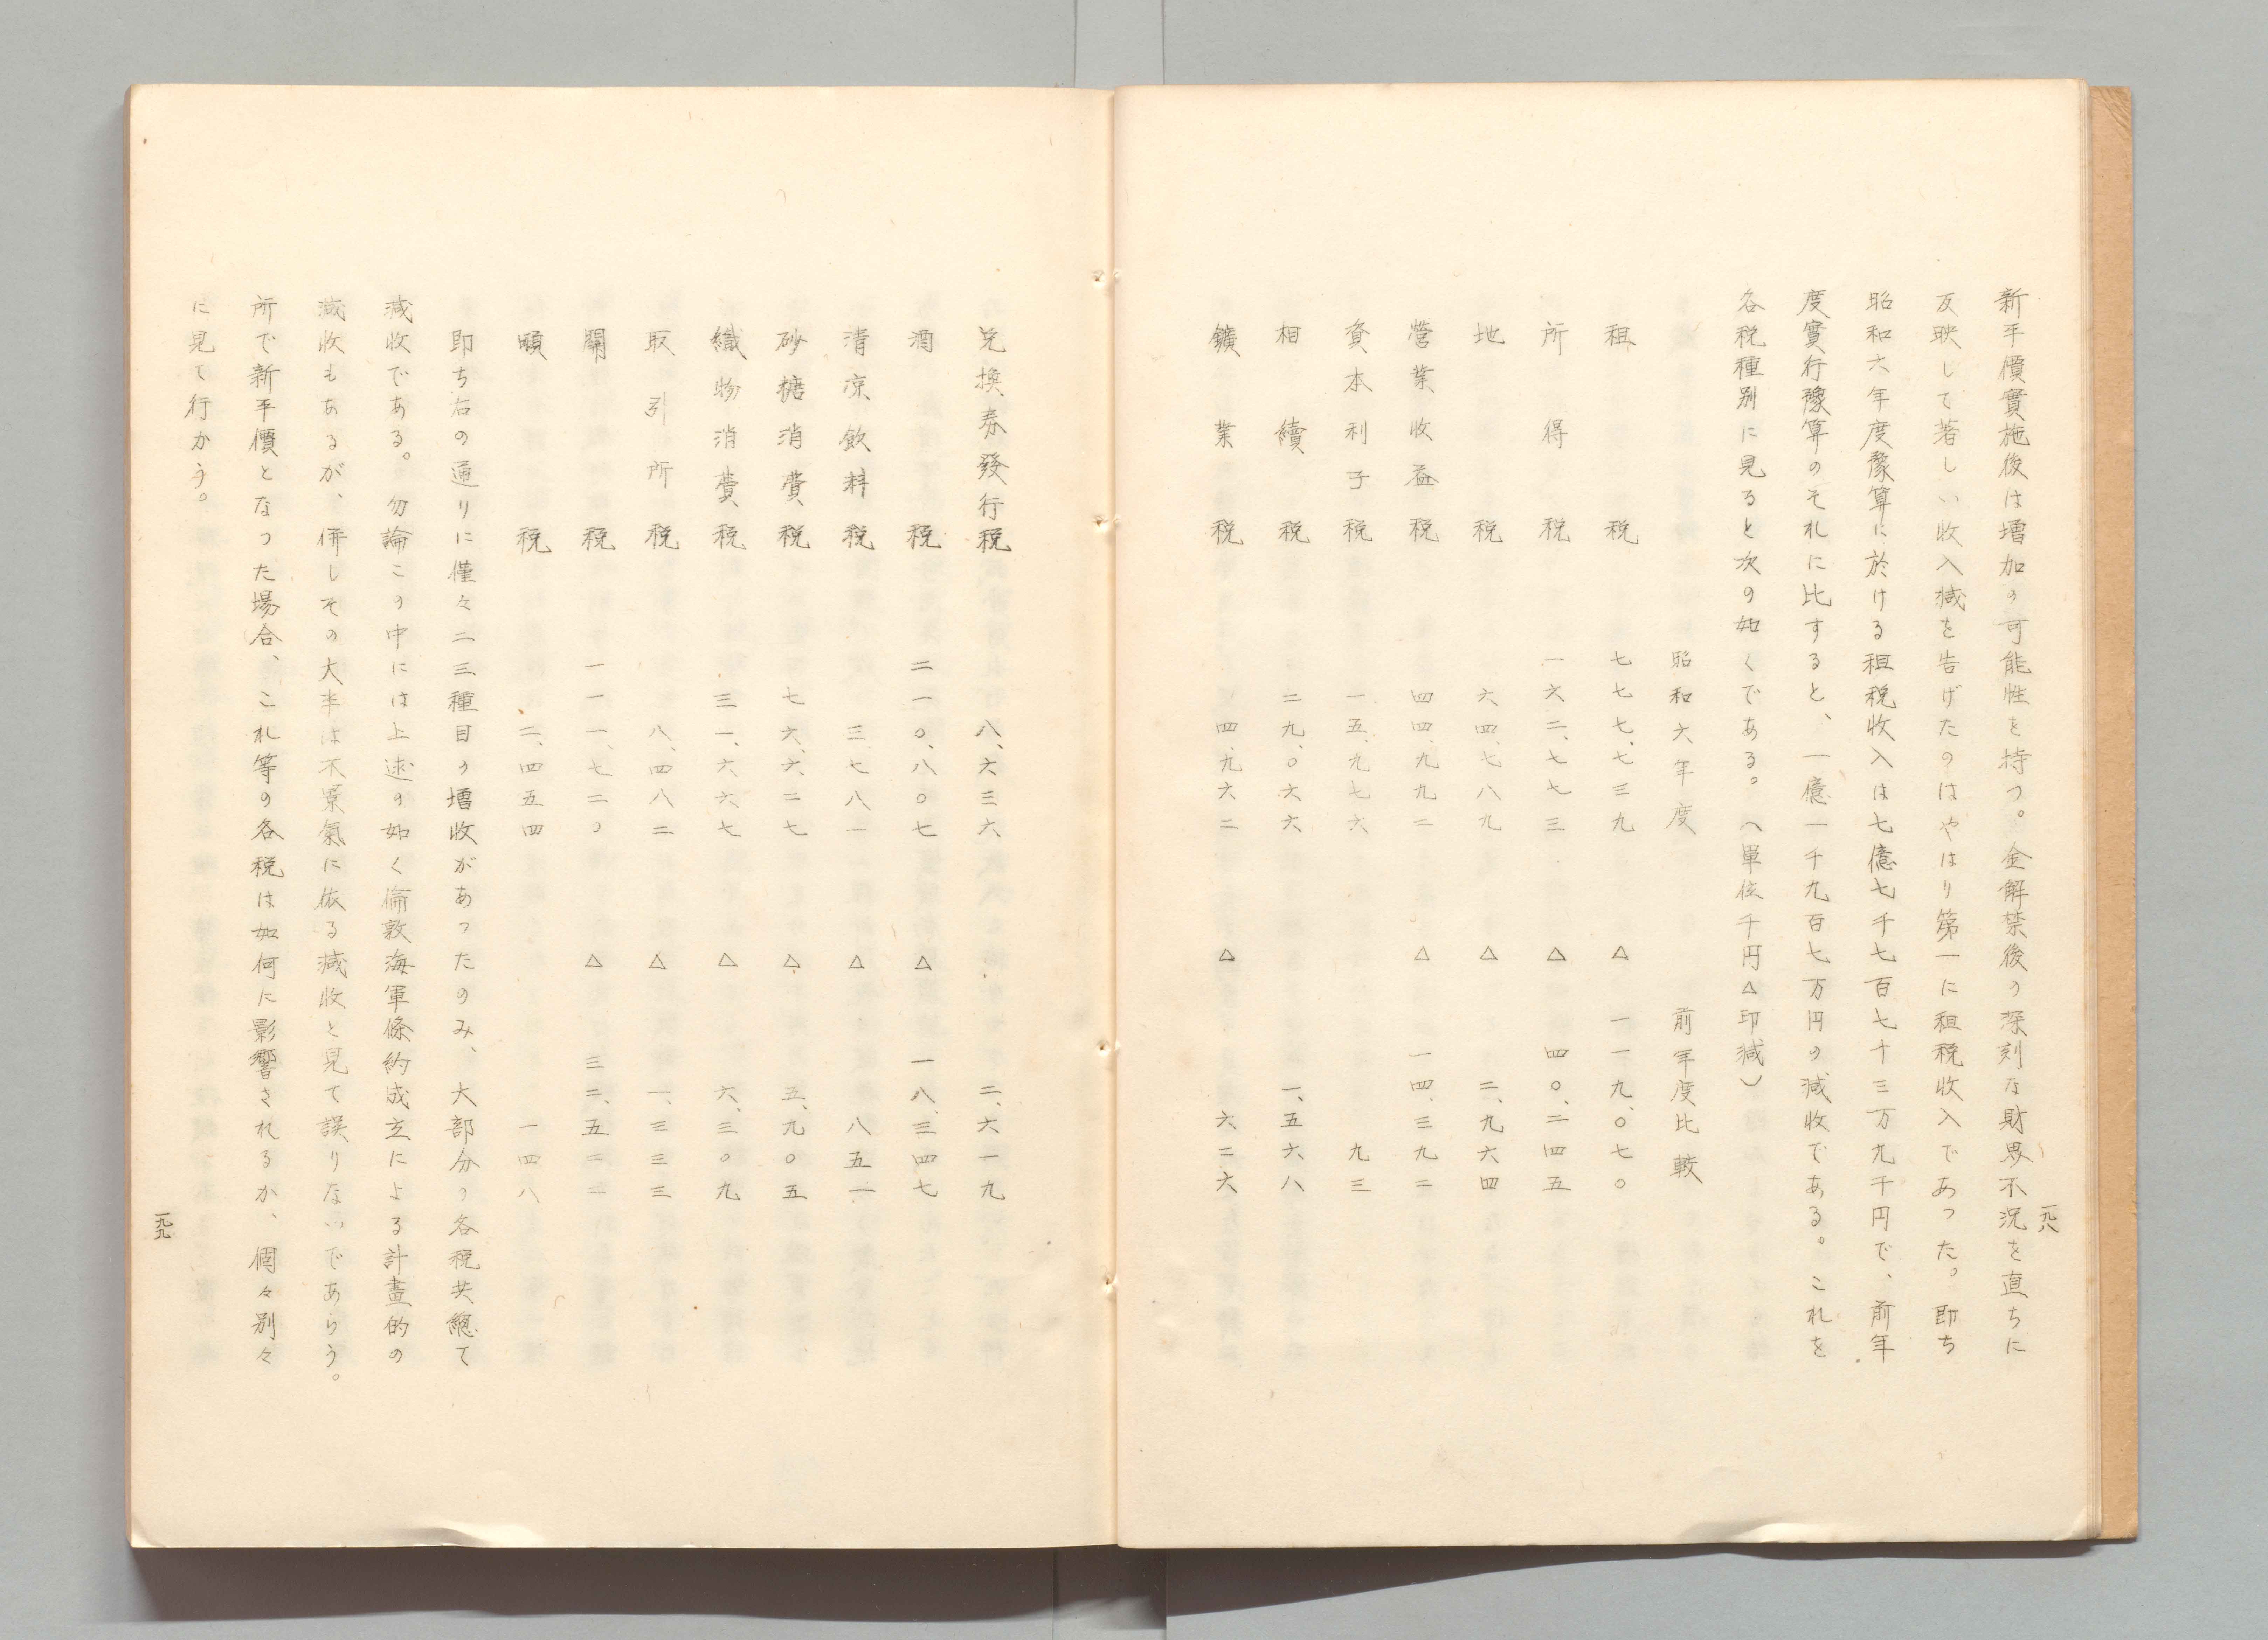 新平價實施後は増加の可能性を持つ。金解禁後の深刻な財界不況を直ちに
反映して著しい收入減を告げたのはやはり第一に租税收入であつた。即ち
昭和六年度豫算に於ける租税收入は七億七千七百七十三万九千円で、前年
度實行豫算のそれに比すると、一億一千九百七万円の減收である。これを
各税種別に見ると次の如くである。(單位千円△印減)
昭和六年度 前年度比較
租税 七七七、七三九 △ 一一九、〇七〇
所得税 一六二、七七三 △ 四〇、二四五
地税 六四、七八九 △ 二、九六四
營業收益税 四四、九九二 △ 一四、三九二
資本利子税 一五、九七六 九三
相續税 二九、〇六六 一、五六八
鑛業税 四、九六二 △ 六二六
一九八
兌換券發行税 八、六三六 二、六一九
酒税 二一〇、八〇七 △ 一八、三四七
清凉飲料税 三、七八一 △ 八五一
砂糖消費税 七六、六二七 △ 五、九〇五
織物消費税 三一、六六七 △ 六、三〇九
取引所税 八、四八二 △ 一、三三三
關税 一一一、七二〇 △ 三二、五二二
噸税 二、四五四 一四八
即ち右の通りに僅々二三種目の増收があつたのみ、大部分の各税共總て
減收である。勿論この中には上述の如く倫敦海軍條約成立による計畫的の
減收もあるが、併しその大半は不景氣に依る減收と見て誤りないであらう。
所で新平價となつた場合、これ等の各税は如何に影響されるか、個々別々
に見て行かう。
一九九